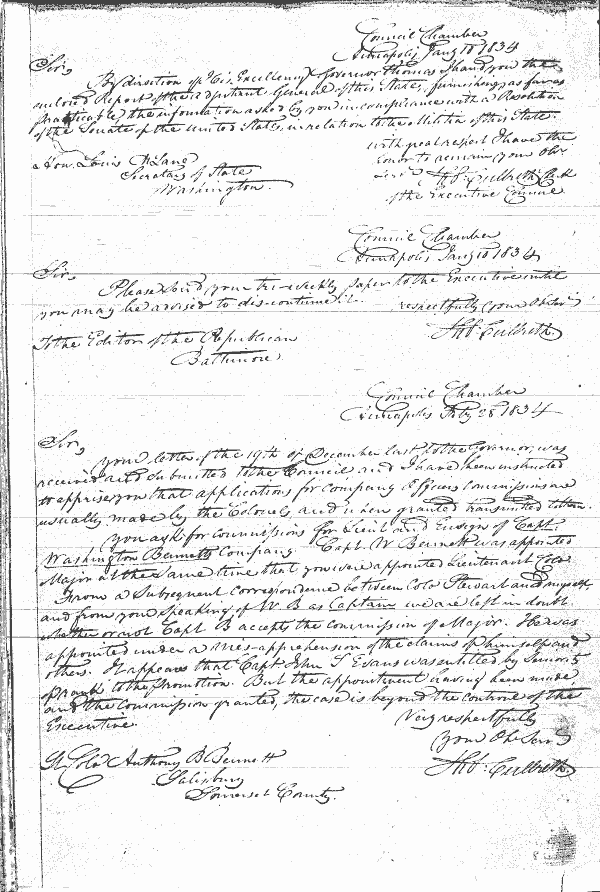 Council Chamber
Annapolis Jany 10 1834
Sir,
By direction of His Excellency Governor Thomas I hand you the
enclosed Report of the adjutant General of this State, furnishing as far as
practicable the information asked by you in compliance with a Resolution
of the Senate of the United States, in relation to the Militia of this State.
with great respect I have the
honor to remain, your Obt
Servt Ths. Culbreth Clk
of the Executive Council
Hon. Louis McLane
Secretary of State
Washington.
Council Chamber
Annapolis Jany 10 1834
Sir,
Please send your tri-weekly paper to the Executive until
you may be advised to discontinue it.
respectfully your Obt Servt
Ths. Culbreth
To the Editor of the Republican
Baltimore.
Council Chamber
Annapolis Feby 28 1834
Sir,
your letter of the 19th of December last to the Governor, was
received and submitted to the Council and I have been instructed
to apprise you that applications for Company Officers Commissions are
usually made by the Colonels, and when granted transmitted to them.
you ask for commissions for Lieut and Ensign of Capt.
Washington Bennetts Company. Capt. W Bennett was appointed
Major at the same time that you were appointed Lieutenant Colo
From a Subsequent correspondence between Colo Stewart and myself,
and from your speaking of W. B as Captain we are left in doubt
whether or not Capt B accepts the commission of Major. He was
appointed under a mis-apprehension of the claims of himself and
others. It appears that Capt John T Evans was entitled by Seniority
of rank to the promotion. But the appointment having been made
and the Commission granted, the case is beyond the controle of the
Executive.
Very respectfully
your Obt Servt
Ths. Culbreth
Lt Colo Anthony B Bennett
Salisbury
Somerset County.